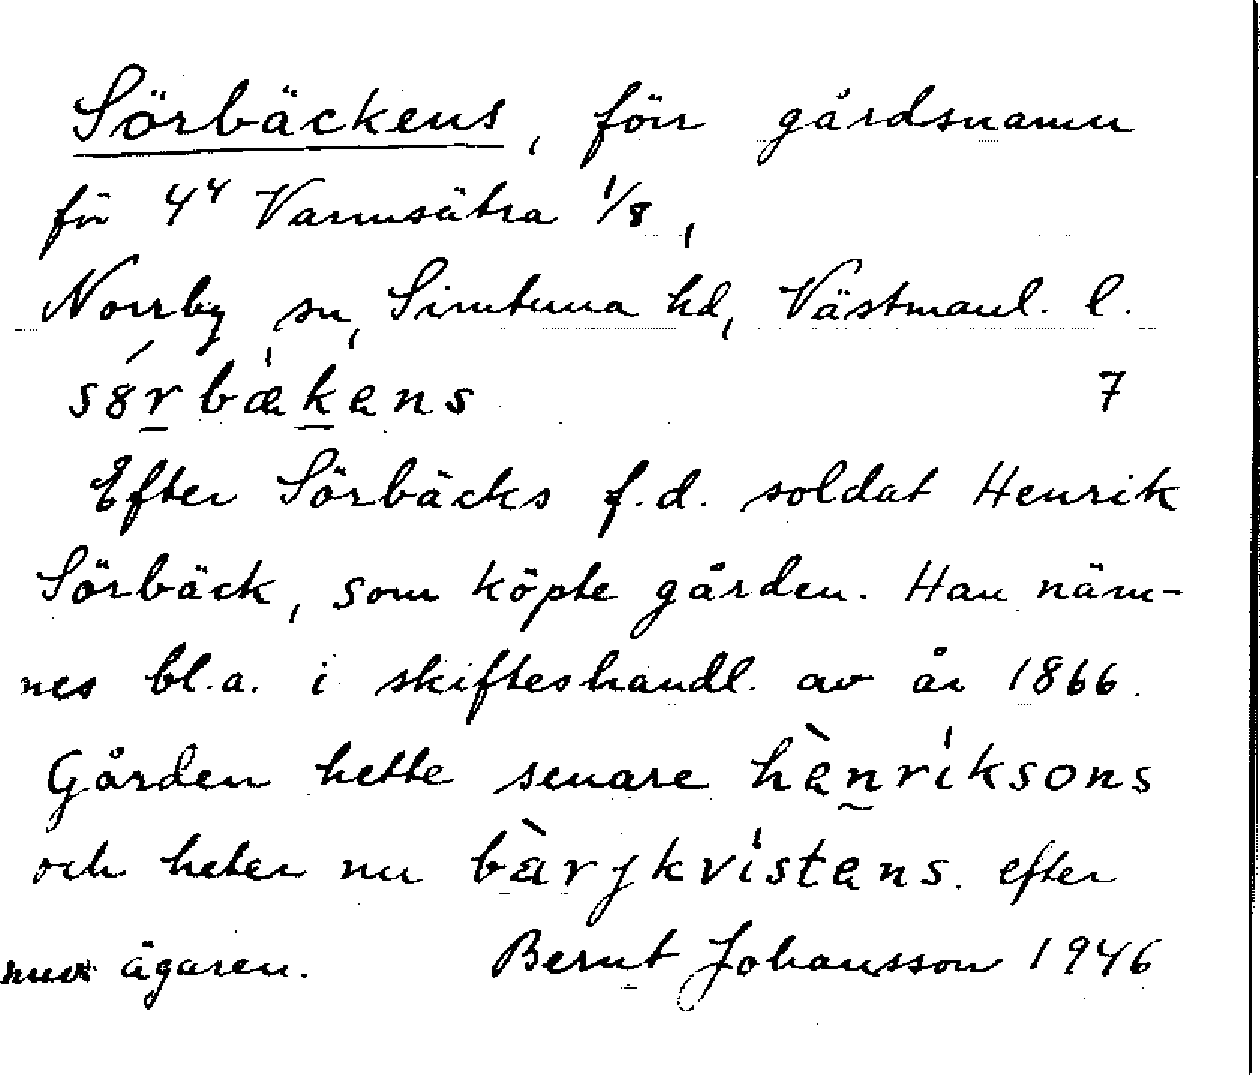 Sörbäckens, förr gårdsnamn
för 4⁴ Varmsätra 1/8,
Norrby sn, Simtuna hd, Västmanl. l.
sörbäkens 7
Efter Sörbäcks f.d. soldat Henrik
Sörbäck, som köpte gården. Han näm-
nes bl.a. i skifteshandl. av år 1866.
Gården hette senare hènriksons
och heter nu bàrjkvistens. efter
nuv ägaren. Bernt Johansson 1946